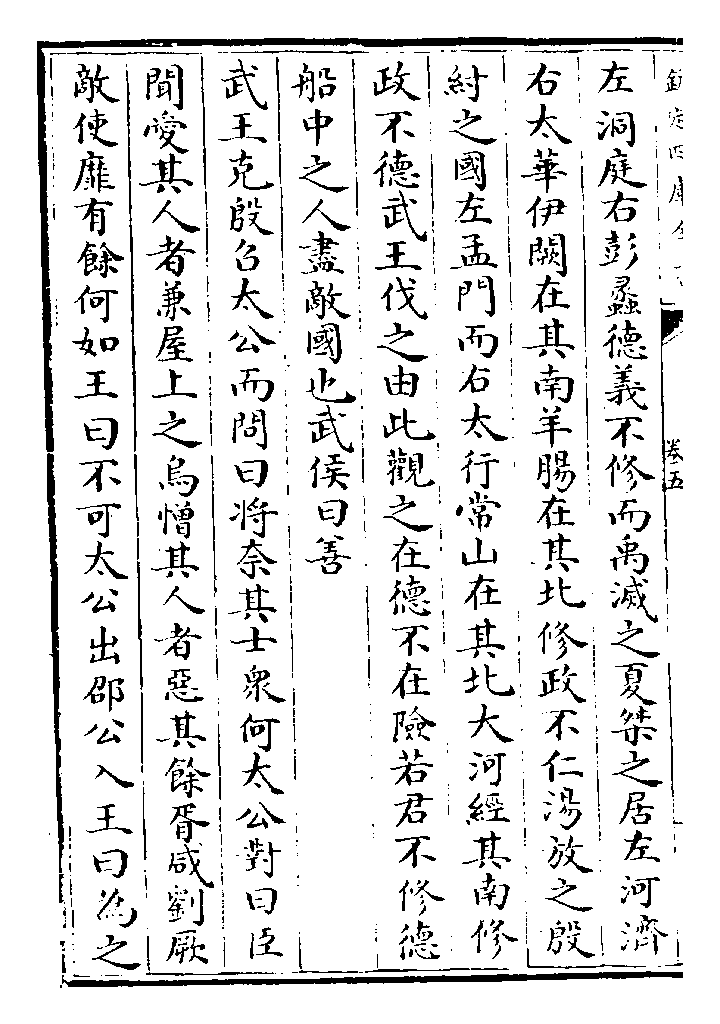 左洞庭右彭蠡德義不修而禹滅之夏桀之居左河濟
右太華伊闕在其南羊腸在其北修政不仁湯放之殷
紂之國左孟門而右太行常山在其北大河經其南修
政不德武王伐之由此觀之在德不在險若君不修德
船中之人盡敵國也武侯曰善
武王克殷召太公而問曰将奈其士衆何太公對曰臣
聞愛其人者兼屋上之烏憎其人者惡其餘胥咸劉厥
敵使靡有餘何如王曰不可太公出邵公入王曰為之
卷五